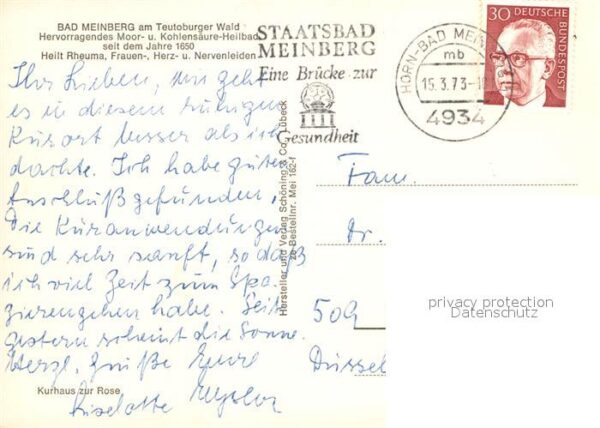 BAD MEINBERG am Teutoburger Wald
Hervorragendes Moor- u. Kohlensäure-Heilbad
seit dem Jahre 1650
Heilt Rheuma, Frauen-, Herz- u. Nervenleiden
STAATSBAD
MEINBERG
Eine Brücke zur
Gesundheit
HORN-BAD MEIN
mb
15.3.73-1
4934
30 DEUTSCHE
BUNDESPOST
Ihr Lieben, mir geht
es in diesem ruhigen
Kurort besser als ich
dachte. Ich habe guten
Anschluß gefunden,
die Kuranwendungen
sind sehr sanft, so daß
ich viel Zeit zum Spa-
zierengehen habe. Seit
gestern scheint die Sonne.
Herzl. Grüße Eure
Liselotte
Kurhaus zur Rose
Hersteller und Verlag Schöning & Co., Lübeck
zu Bestellnr. Mei 162-f
Fam.
Dr.
509
Düssel
privacy protection
Datenschutz